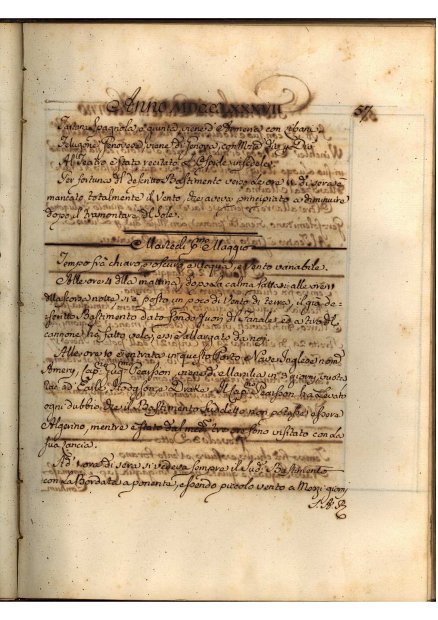 Anno MDCCLXXXVII
57
Tartana Spagnola è giunta, viene d'                con
Felugone Genovese viene di Genova, con Mola di
Al Teatro è stato recitato
Per fortuna il descritto Bastimento verso le ore 11 di sera
mancato totalmente il Vento che aveva principiato a diminuire
dopo il tramontare del Sole.
Martedì pmo Maggio
Tempo frà chiaro, e oscuro, e acqua, e Vento variabile.
Alle ore 4 della mattina dopo la calma fattasi alle ore 11
della scorsa notte si è posto un poco di Vento di terra, il già de-
scritto Bastimento dato fondo fuori di Fanale, ed a tiro di
cannone, hà fatto vela, e si è allargato da noi.
Alle ore 10 è entrata in questo Porto la Nave Inglese nomta
Amery, Capno Guglmo Pearson, viene di Marsilia in 3 giorni, vuota
rac. ad Earle, Hodgson, e Drake. Il Capno Pearson ha levato
ogni dubbio che il Bastimento suddetto non potesse essere
Algerino, mentre è stato dal medmo bro per fino visitato con la
sua Lancia.
Ad 1 ora di sera si vedeva sempre il sud. Bastimento
con la Bordata a ponente, essendo piccolo vento a Mezzi giorni,